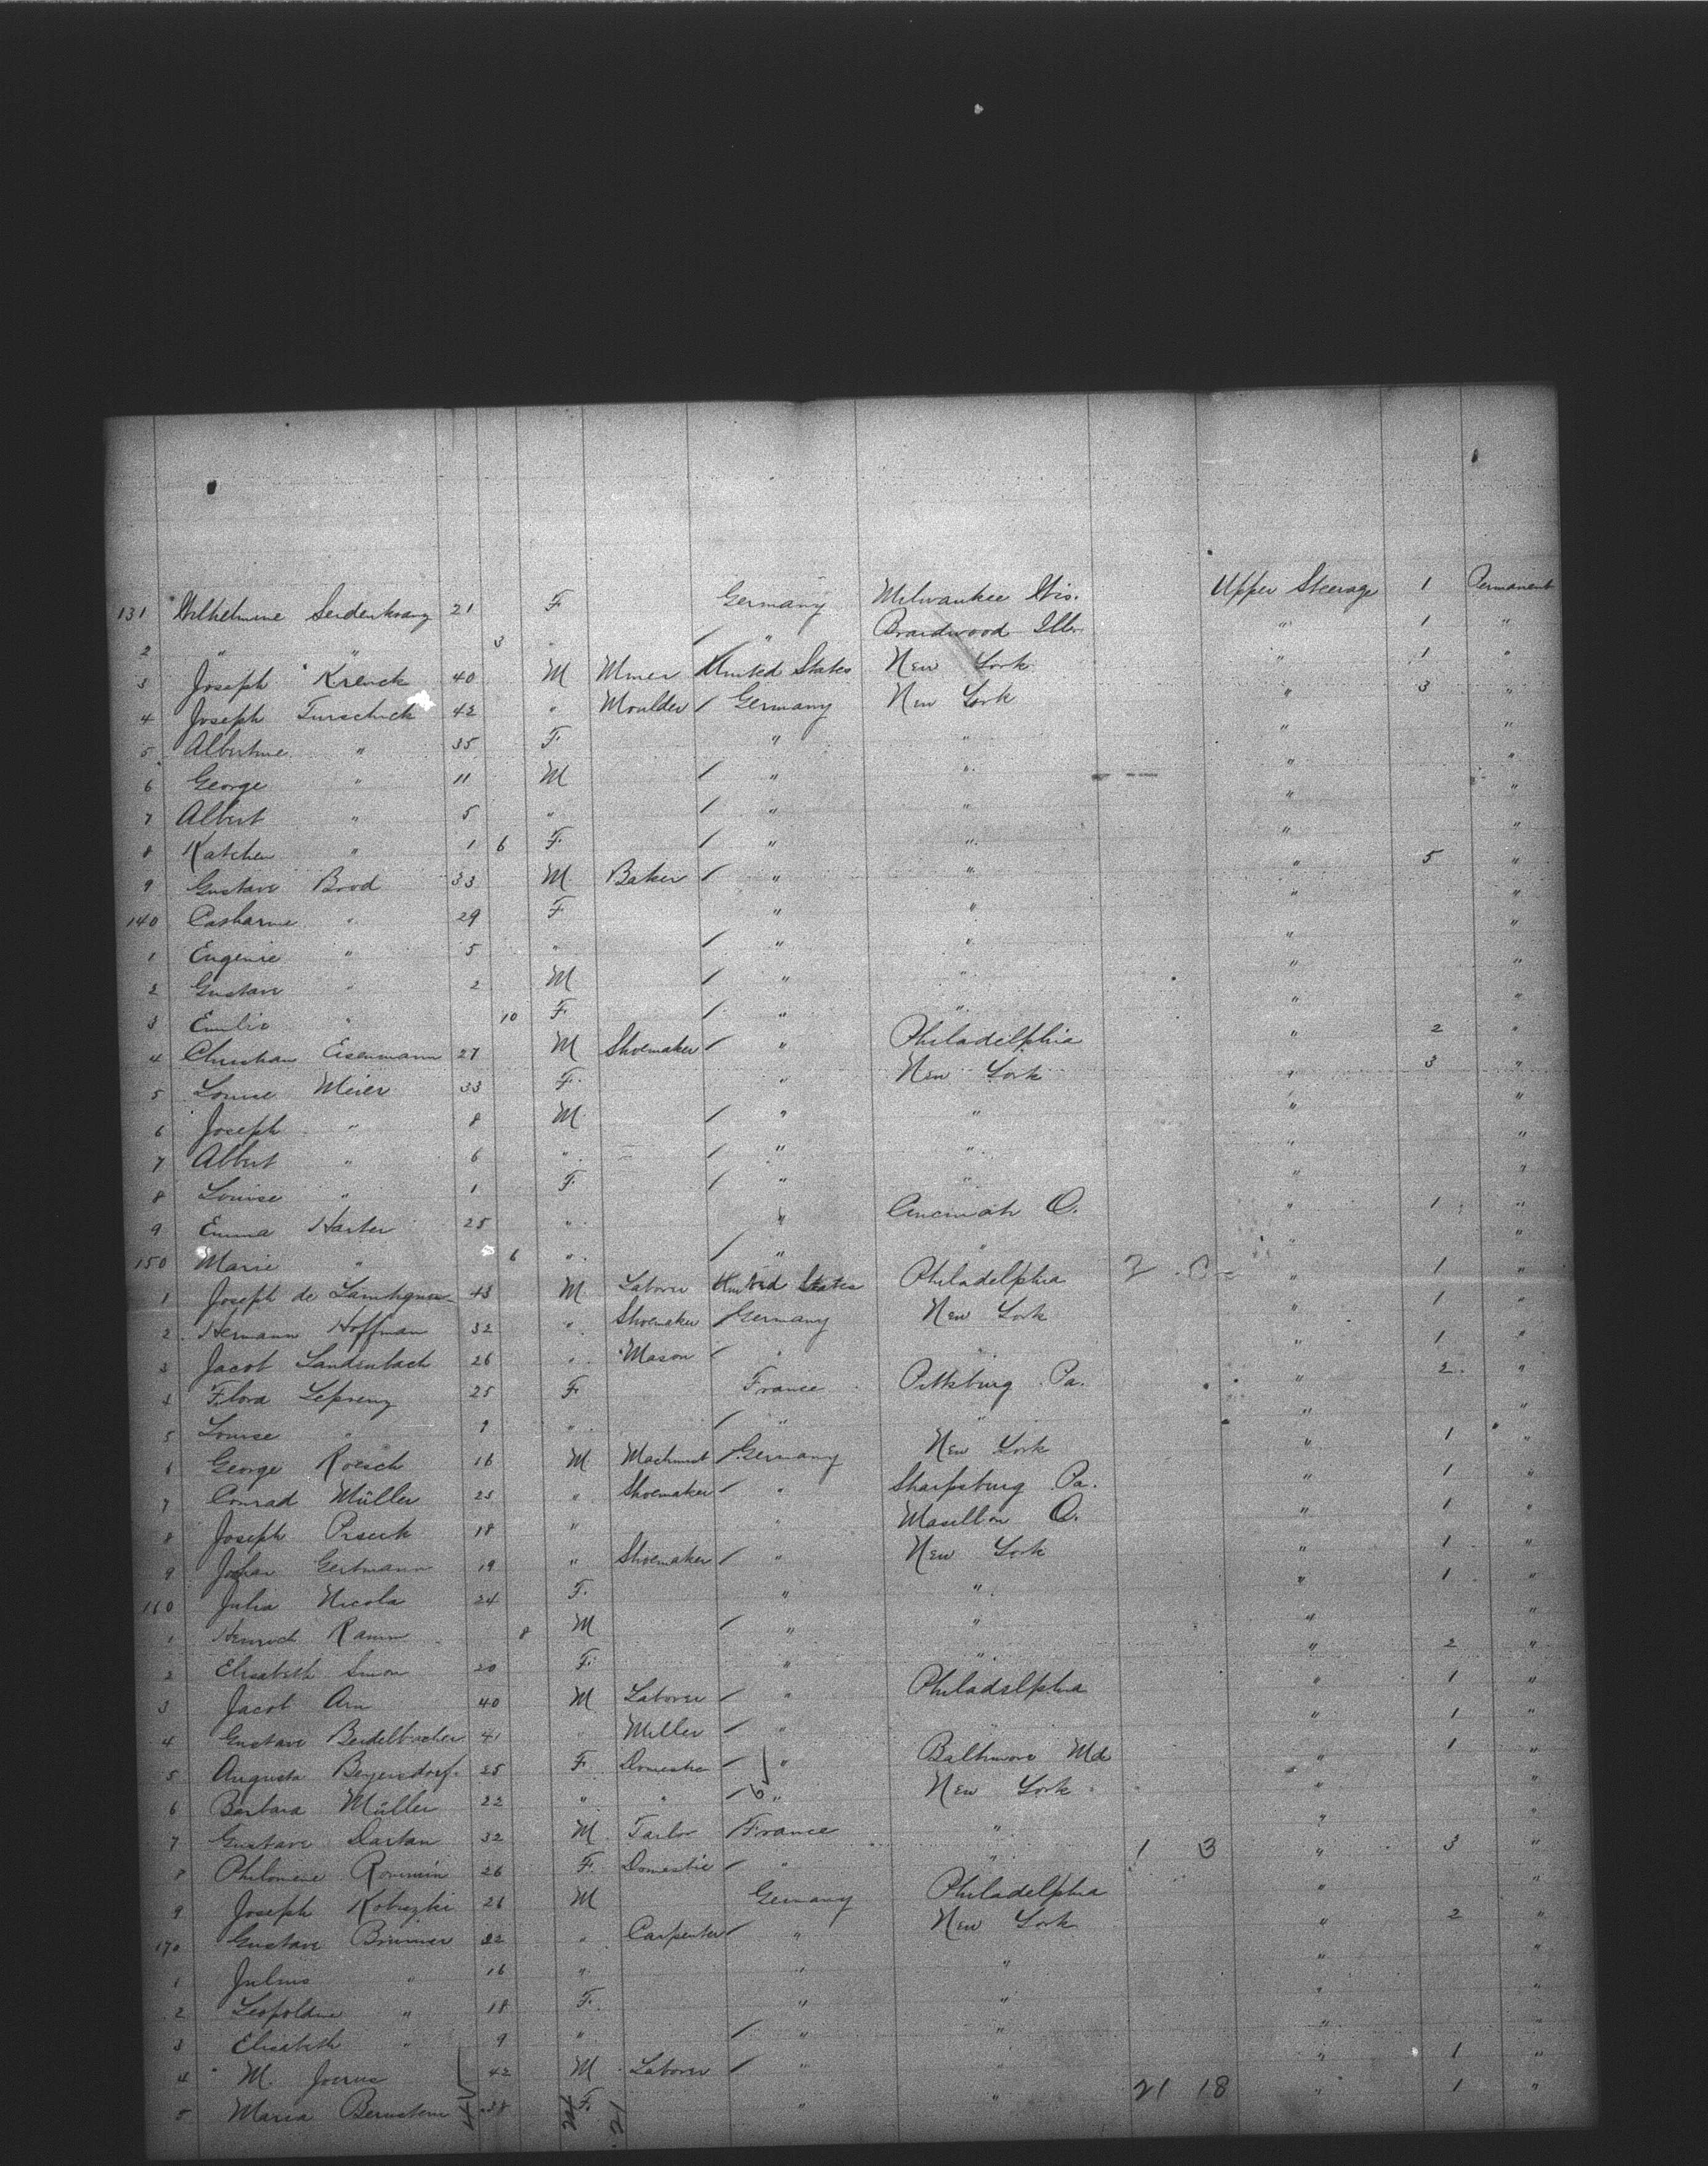 131 Wilhelmine Seidenkranz 21 F Germany Milwaukee Wis. Upper Steerage 1 Permanent
2 " " 3 " / " Braidwood Ill. " 1 "
3 Joseph Krenek 40 M Miner / United States New York " 1 "
4 Joseph Turschick 42 " Moulder / Germany New York " 3 "
5 Albertine " 35 F. " " " "
6 George " 11 M / " " " "
7 Albert " 5 " / " " " "
8 Katchen " 1 6 F. / " " " "
9 Gustave Bood 33 M Baker / " " " 5 "
140 Catharine " 29 F " " " "
1 Eugenie " 5 " / " " " "
2 Gustave " 2 M / " " " "
3 Emilie " 10 F. / " " " "
4 Christian Eisenmann 27 M Shoemaker / " Philadelphia " 2 "
5 Louise Meier 33 F. " New York " 3 "
6 Joseph " 8 M / " " " "
7 Albert " 6 " / " " " "
8 Louise " 1 F. / " " " "
9 Emma Harter 25 " " Cincinati O. " 1 "
150 Marie " 6 " / " " " "
1 Joseph de 43 M Laborer United States Philadelphia 2 0 " 1 "
2 Hermann Hoffman 32 " Shoemaker / Germany New York " 1 "
3 Jacob Landenbach 26 " Mason / " " " 1 "
4 Flora 25 F France Pittsburg Pa. " 2 "
5 Louise " 9 " / " " " "
6 George Roesch 16 M Machinist / Germany New York " 1 "
7 Conrad Müller 25 " Shoemaker / " Sharpsburg Pa. " 1 "
8 Joseph 18 " " Masillon O. " 1 "
9 Johan Gertmann 19 " Shoemaker / " New York " 1 "
160 Julia Nicola 24 F. " " " 1 "
1 Heinrich Ramm 8 M / " " " "
2 Elisabeth Simon 20 F. " " " 2 "
3 Jacob Arn 40 M Laborer / " Philadelphia " 1 "
4 Gustave 41 " Miller / " " " 1 "
5 Augusta Beyersdorf 25 F. Domestic / " Baltimore Md " 1 "
6 Barbara Müller 22 " " / " New York " "
7 Gustave Dartan 32 M Tailor / France " " "
8 Philomene 26 F. Domestic / " " 1 3 " 3 "
9 Joseph 26 M Germany Philadelphia " "
170 Gustave Brunner 22 " Carpenter / " New York " 2 "
1 Julius " 16 " " " " "
2 Leopoldine " 18 F. " " " "
3 Elisabeth " 9 " / " " " "
4 M. 42 M Laborer / " " " 1 "
5 Maria Bernstein 38 F. " " 21 18 " 1 "